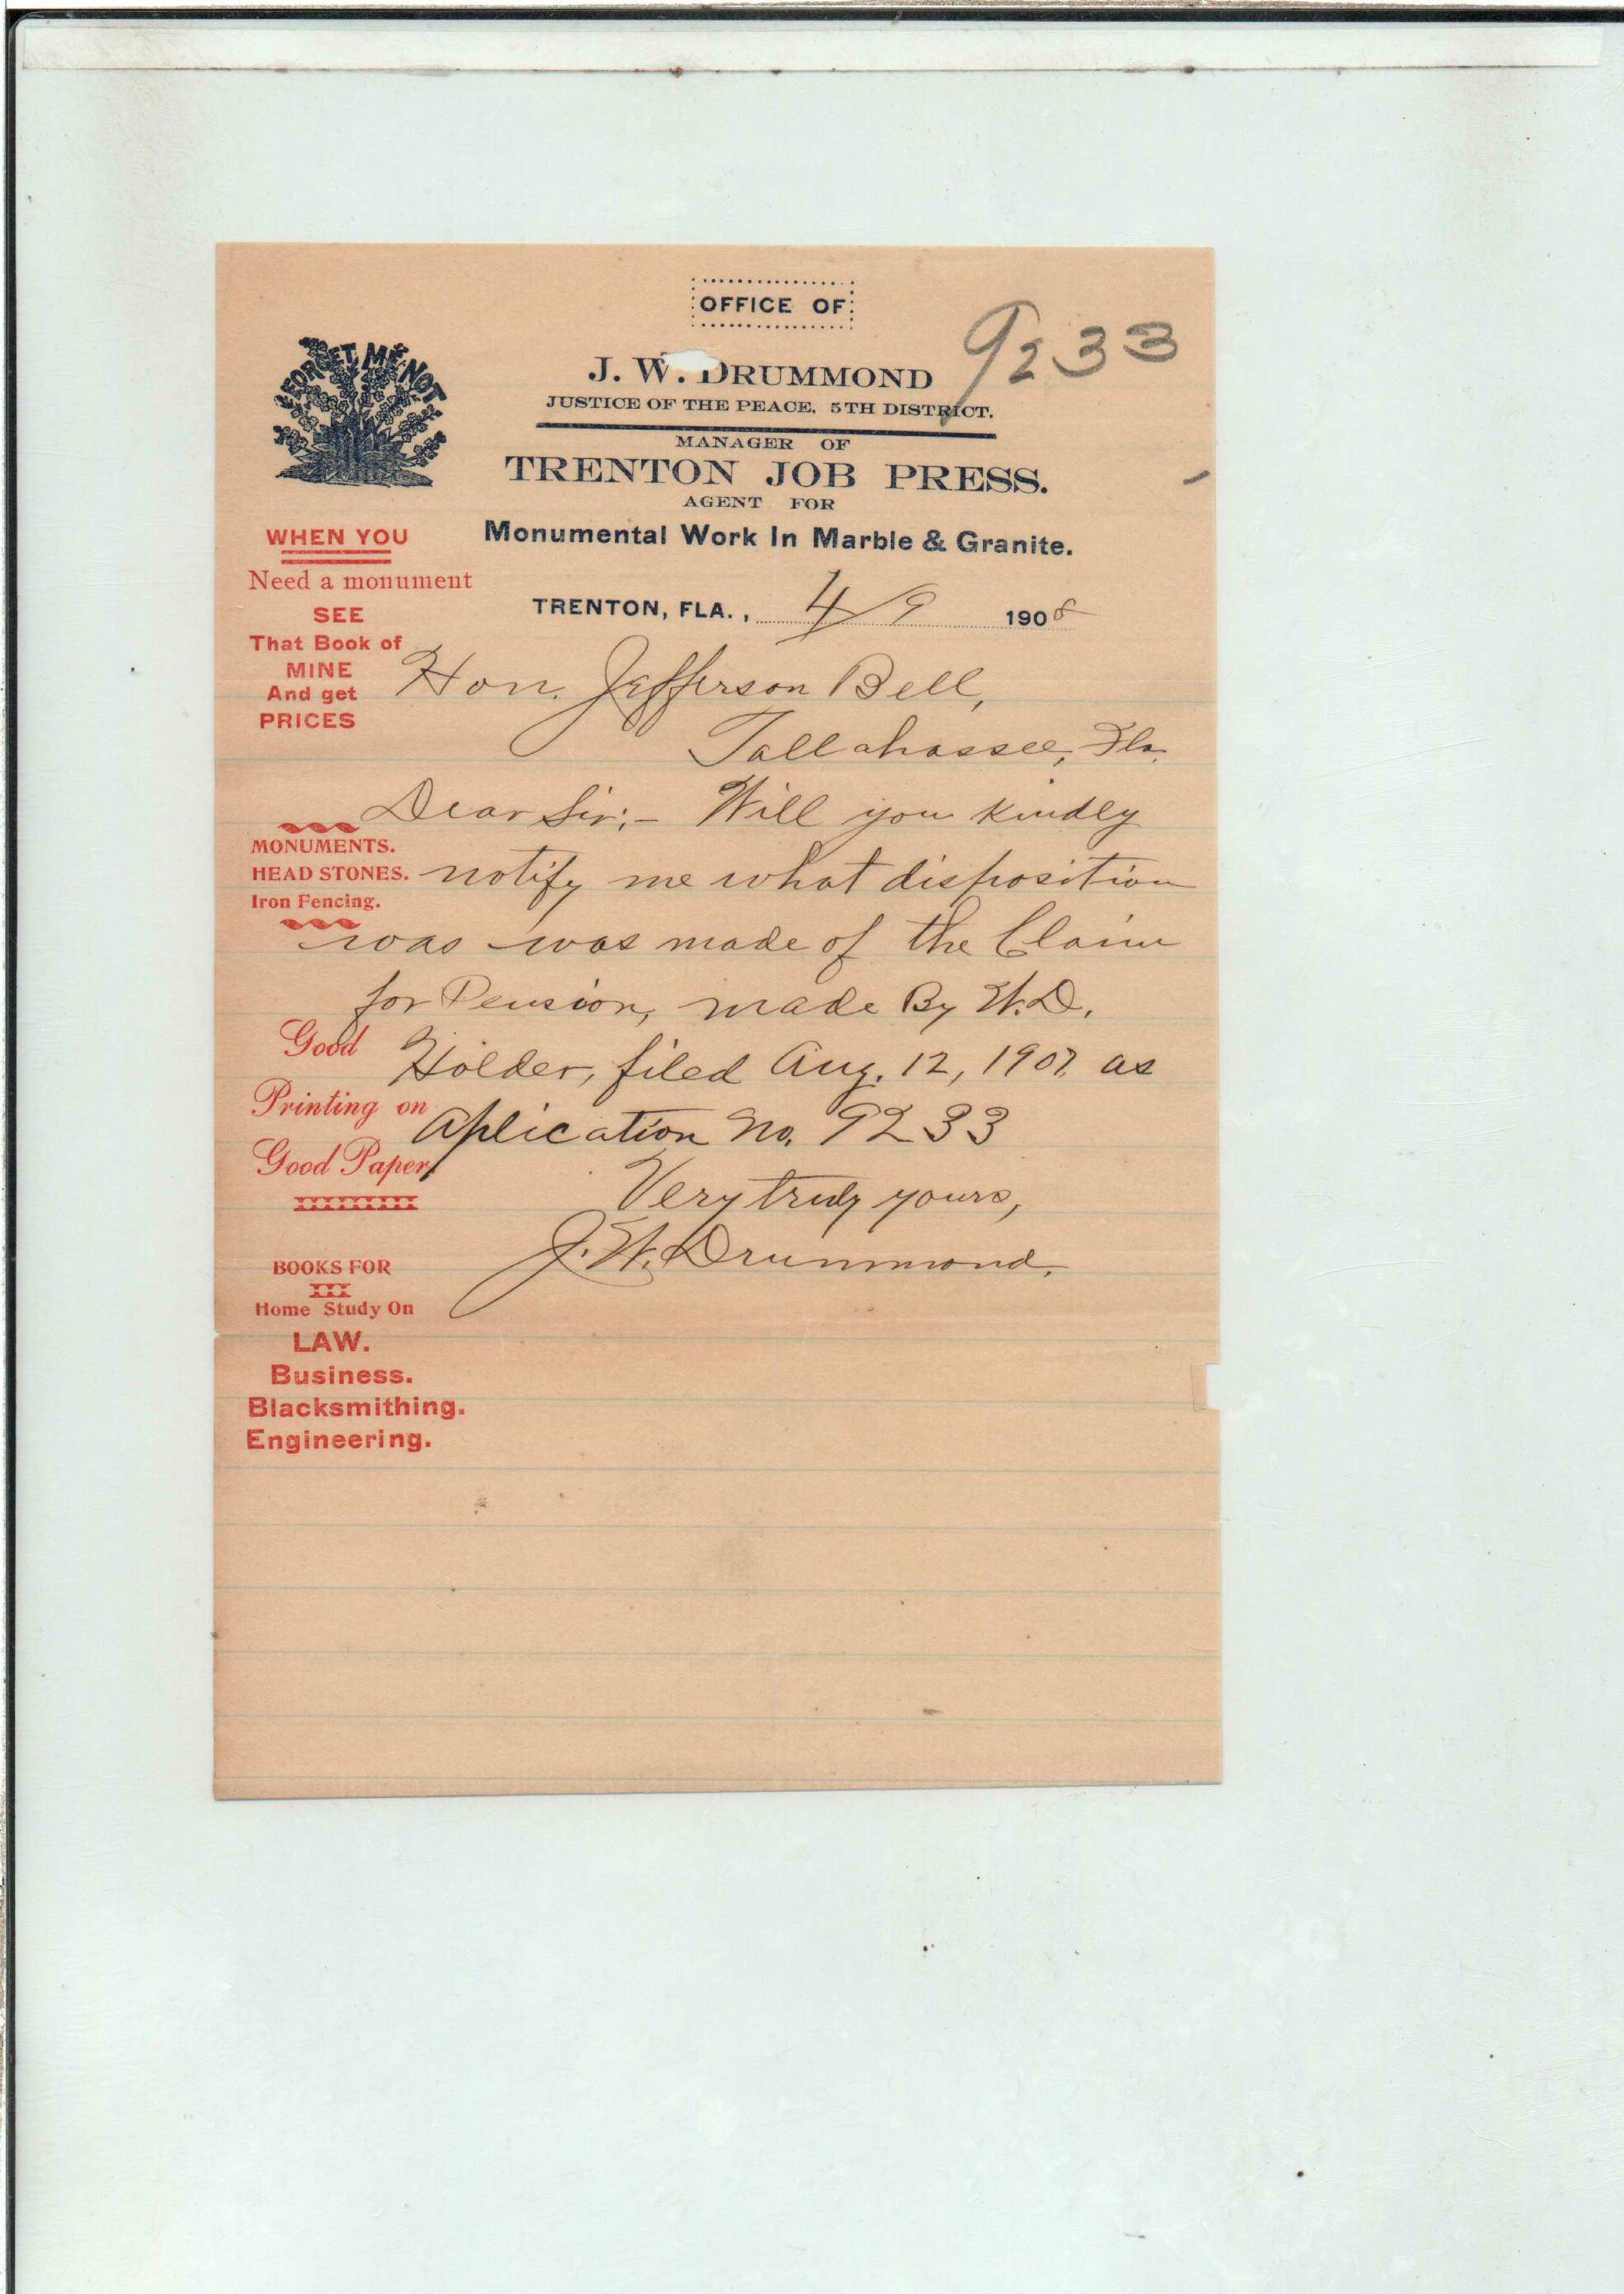 OFFICE OF
9233
FORGET ME NOT
J. W. DRUMMOND
JUSTICE OF THE PEACE, 5TH DISTRICT.
MANAGER OF
TRENTON JOB PRESS.
AGENT FOR
Monumental Work In Marble & Granite.
TRENTON, FLA., 4/9 1908
WHEN YOU
Need a monument
SEE
That Book of
MINE
And get
PRICES
Hon. Jefferson Bell,
Tallahassee, Fla.
Dear Sir:- Will you kindly
notify me what disposition
was was made of the Claim
for Pension, made By W.D.
Holder, filed Aug. 12, 1907, as
Aplication No. 9233
Very truly yours,
J. W. Drummond.
MONUMENTS.
HEAD STONES.
Iron Fencing.
Good
Printing on
Good Paper
BOOKS FOR
Home Study On
LAW.
Business.
Blacksmithing.
Engineering.